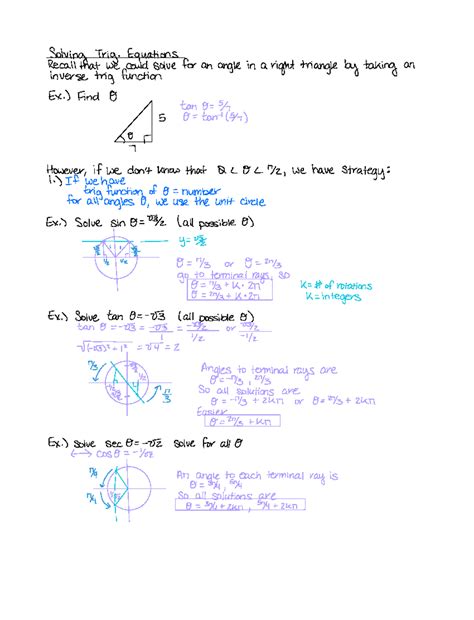 Solving Trig. Equations
Recall that we could solve for an angle in a right triangle by taking an
inverse trig function
Ex.) Find θ
tan θ = 5/7
θ = tan⁻¹(5/7)
5
θ
7
However, if we don't know that 0 < θ < π/2, we have strategy:
1.) If we have
trig function of θ = number
for all angles θ, we use the unit circle
Ex.) Solve sin θ = √3/2 (all possible θ)
y = √3/2
θ = π/3 or θ = 2π/3
go to terminal rays, so
θ = π/3 + k · 2π
θ = 2π/3 + k · 2π
k = # of rotations
k = integers
Ex.) Solve tan θ = -√3 (all possible θ)
tan θ = -√3 = -√3/1 = -√3/2 / 1/2 or √3/2 / -1/2
√(-√3)² + 1² = √4 = 2
Angles to terminal rays are
θ = -π/3, 2π/3
So all solutions are
θ = -π/3 + 2kπ or θ = 2π/3 + 2kπ
Easier
θ = 2π/3 + kπ
Ex.) Solve sec θ = -√2 solve for all θ
↔ cos θ = -1/√2
An angle to each terminal ray is
θ = 3π/4, 5π/4
So all solutions are
θ = 3π/4 + 2kπ, 5π/4 + 2kπ